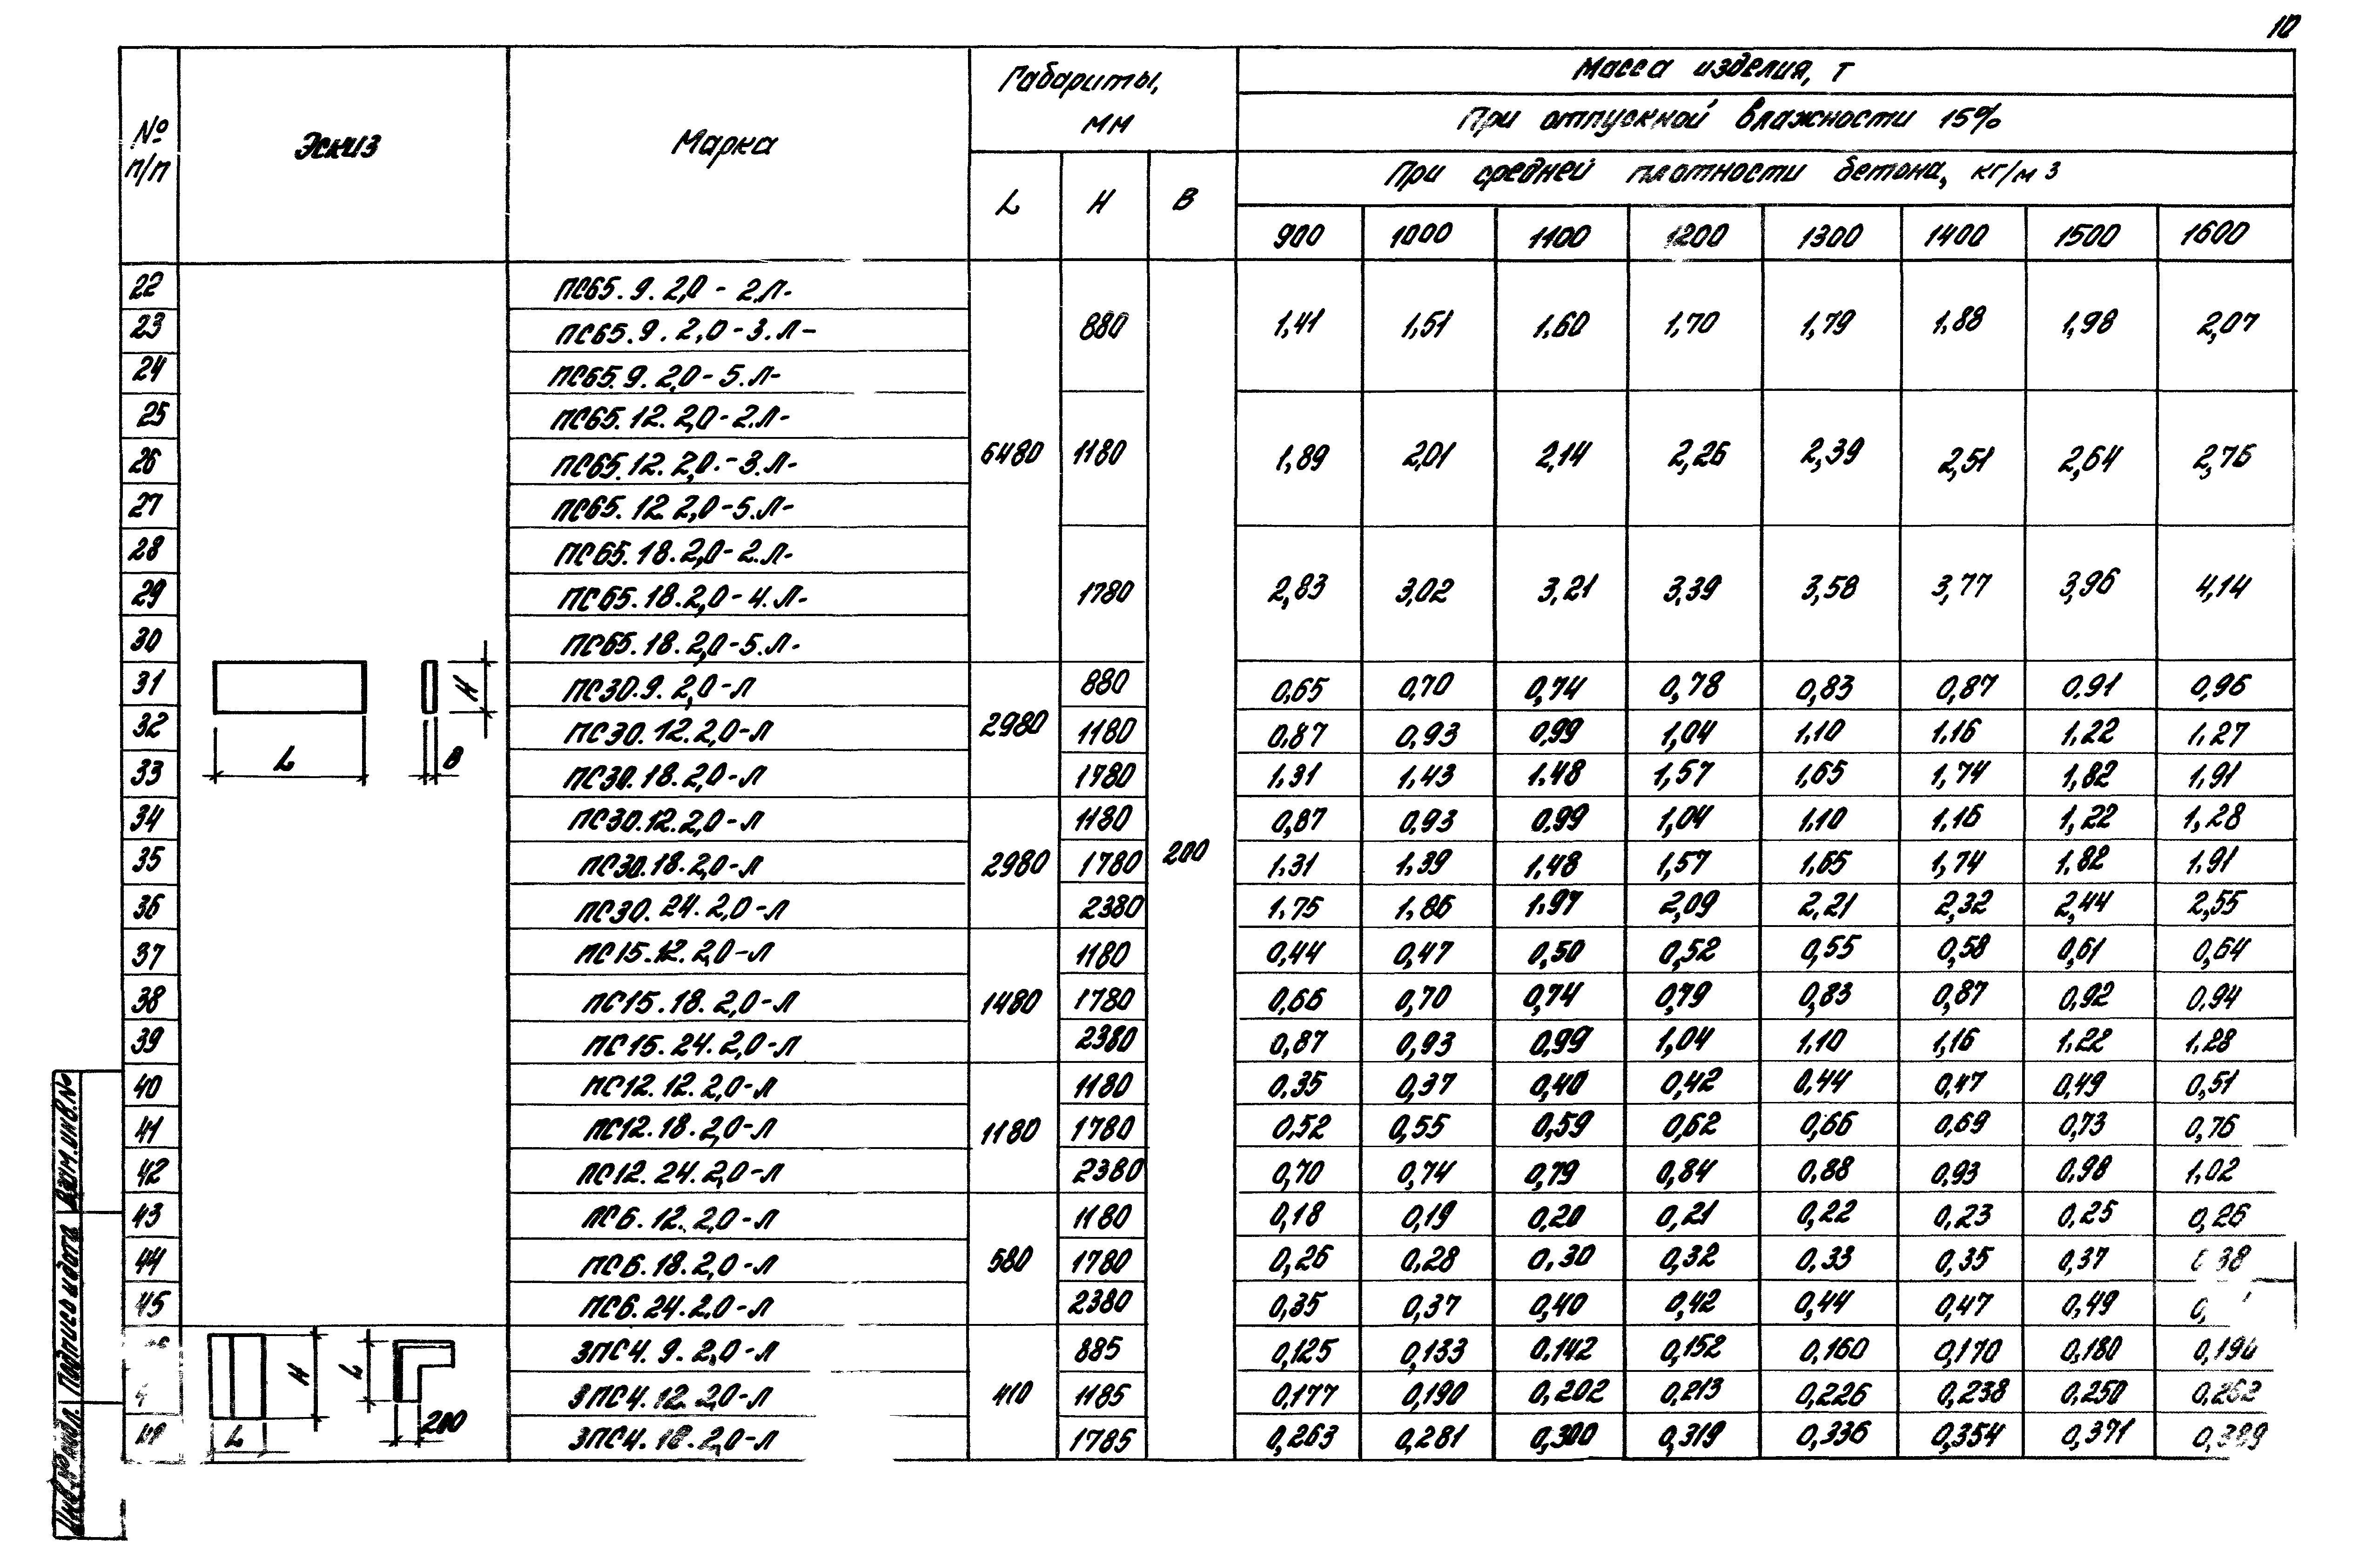 10
№ п/п Эскиз Марка Габариты, мм Масса изделия, т
При отпускной влажности 15%
При средней плотности бетона, кг/м3
L H B 900 1000 1100 1200 1300 1400 1500 1600
22 ПС65.9.2,0-2.Л-
23 ПС65.9.2,0-3.Л- 880 1,41 1,51 1,60 1,70 1,79 1,88 1,98 2,07
24 ПС65.9.2,0-5.Л-
25 ПС65.12.2,0-2.Л-
26 ПС65.12.2,0.-3.Л- 6480 1180 1,89 2,01 2,14 2,26 2,39 2,51 2,64 2,76
27 ПС65.12.2,0-5.Л-
28 ПС65.18.2,0-2.Л-
29 ПС65.18.2,0-4.Л- 1780 2,83 3,02 3,21 3,39 3,58 3,77 3,96 4,14
30 ПС65.18.2,0-5.Л-
31 H ПС30.9.2,0-Л 880 0,65 0,70 0,74 0,78 0,83 0,87 0,91 0,96
32 ПС30.12.2,0-Л 2980 1180 0,87 0,93 0,99 1,04 1,10 1,16 1,22 1,27
33 L B ПС30.18.2,0-Л 1780 1,31 1,43 1,48 1,57 1,65 1,74 1,82 1,91
34 ПС30.12.2,0-Л 1180 0,87 0,93 0,99 1,04 1,10 1,16 1,22 1,28
35 ПС30.18.2,0-Л 2980 1780 200 1,31 1,39 1,48 1,57 1,65 1,74 1,82 1,91
36 ПС30.24.2,0-Л 2380 1,75 1,86 1,97 2,09 2,21 2,32 2,44 2,55
37 ПС15.12.2,0-Л 1180 0,44 0,47 0,50 0,52 0,55 0,58 0,61 0,64
38 ПС15.18.2,0-Л 1480 1780 0,66 0,70 0,74 0,79 0,83 0,87 0,92 0,94
39 ПС15.24.2,0-Л 2380 0,87 0,93 0,99 1,04 1,10 1,16 1,22 1,28
40 ПС12.12.2,0-Л 1180 0,35 0,37 0,40 0,42 0,44 0,47 0,49 0,51
41 ПС12.18.2,0-Л 1180 1780 0,52 0,55 0,59 0,62 0,66 0,69 0,73 0,76
42 ПС12.24.2,0-Л 2380 0,70 0,74 0,79 0,84 0,88 0,93 0,98 1,02
43 ПС6.12.2,0-Л 1180 0,18 0,19 0,20 0,21 0,22 0,23 0,25 0,26
44 ПС6.18.2,0-Л 580 1780 0,26 0,28 0,30 0,32 0,33 0,35 0,37 38
45 ПС6.24.2,0-Л 2380 0,35 0,37 0,40 0,42 0,44 0,47 0,49
H L ЗПС4.9.2,0-Л 885 0,125 0,133 0,142 0,152 0,160 0,170 0,180
ЗПС4.12.2,0-Л 410 1185 0,177 0,190 0,202 0,213 0,226 0,238 0,250 0,262
L 200 ЗПС4.18.2,0-Л 1785 0,263 0,281 0,300 0,319 0,336 0,354 0,371 0,389
Инв.№подл. Подпись и дата Взам.инв.№